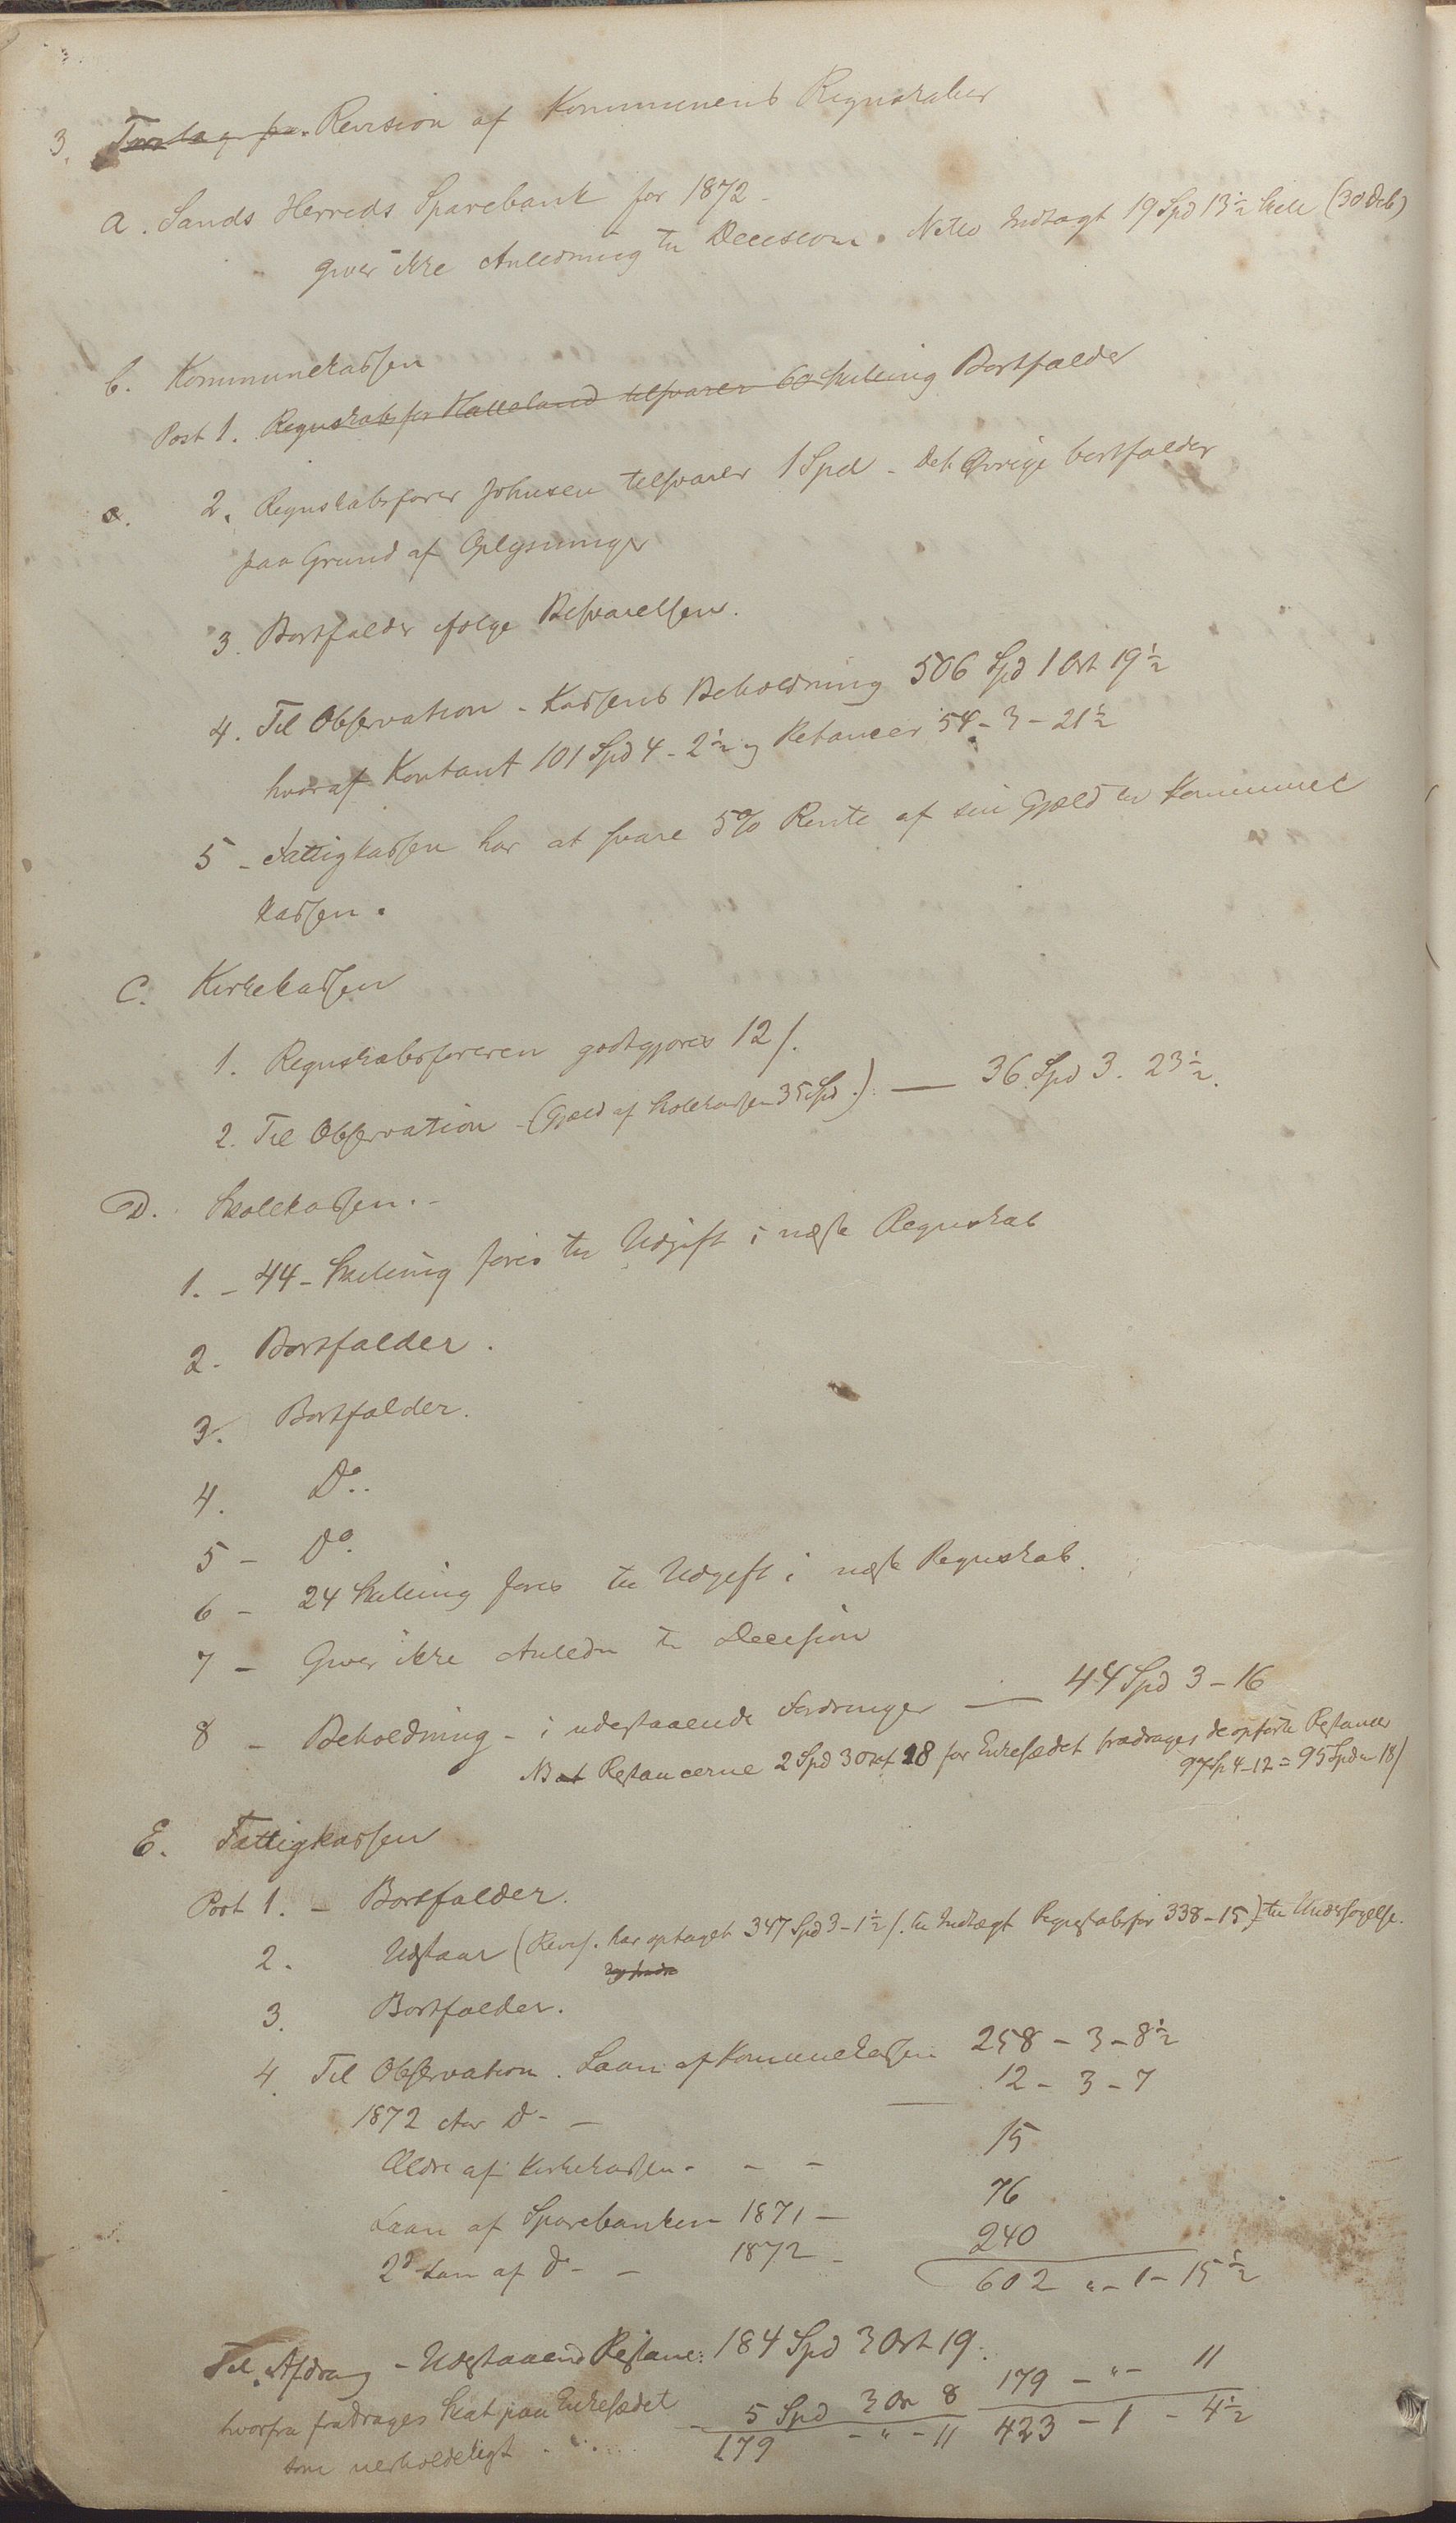 3. Forslag fra Revision af Kommunens Regnskaber
a. Sands Herreds Sparebank for 1872 -
giver ikke Anledning til Decision. Netto Indtægt 19 Spd 13½ Skill (30 Deb)
b. Kommunekassen
Post 1. Regnskabsfør Hallaland tilsvarer 60 Skilling Bortfalder
a. 2. Regnskabsfører Johnsen tilsvarer 1 Spd - Det Øvrige bortfalder
paa Grund af Oplysninger
3. Bortfalder ifølge Besvarelsen.
4. Til Observation - Kassens Beholdning 506 Spd 1 Ort 19½
hvoraf Kontant 101 Spd 4 - 2½ og Restancer 54 - 3 - 21½
5 - Fattigkassen har at svare 5% Rente af sin Gjæld til Kommune
kassen.
C. Kirkekassen
1. Regnskabsføreren godtgjøres 12 /.
2. Til Observation - (Gjæld af Skolekassen 35 Spd.) — 36 Spd 3. 23½.
D. Skolekassen. -
1. - 44 - Skilling føres til Udgift i næste Regnskab
2. Bortfalder.
3. Bortfalder.
4. Do.
5 - Do.
6 - 24 Skilling føres til Udgift i næste Regnskab.
7 - Giver ikke Anledn til Decision
8 - Beholdning - i udestaaende Fordringer — 44 Spd 3 - 16
NB at Restancerne 2 Spd 3 Ort 18 for Enkesædet fradrages de opførte Restancer
97 Sp 4 - 12 = 95 Spd " 18 /
E. Fattigkassen
Post 1. - Bortfalder.
2. Udstaar (Revis. har optaget 347 Spd 3 - 1½ /. til Indtægt Regnskabsfør 338 - 15) til Undersøgelse.
3. Bortfalder.
4. Til Observation. Laan af Kommunekassen 258 - 3 - 8½
1872 Aar Do - — 12 - 3 - 7
Ældre af Kirkekassen - - - 15
Laan af Sparebanken 1871 — 76
2d Laan af Do - - 1872 - 240
602 " - 1 - 15½
Til Afdrag - Udestaaend Restanc: 184 Spd 3 Ort 19.
hvorfra fradrages Skat paa Enkesædet - 5 Spd 3 Or 8 179 - " - 11
som uerholdeligt - 179 - " - 11 423 - 1 - 4½